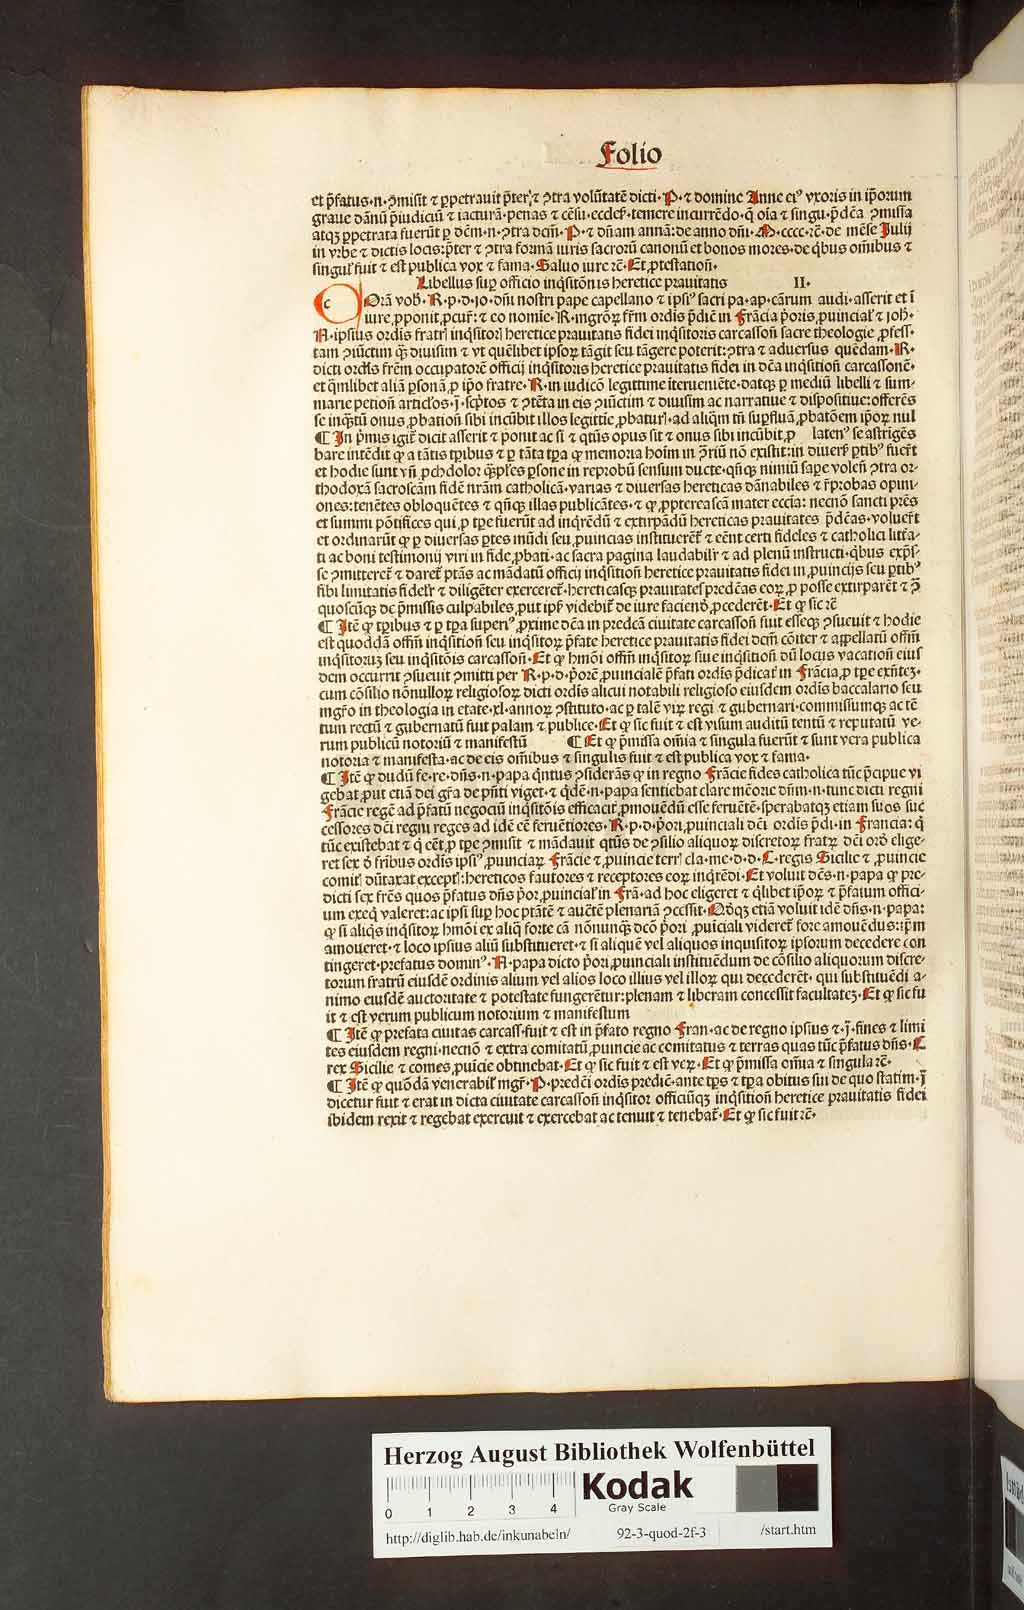 Folio
et p̃fatus·n·ꝯmisit ⁊ ꝑpetrauit p̃ter ⁊ ꝯtra volũtatẽ dicti·P·⁊ domine Anne eiꝰ vxoris in ip̃orum
graue dãnũ p̃iudiciũ ⁊ iacturã·penas ⁊ cẽsu·eccles·temere incurrẽdo·q̃ oĩa ⁊ singu·p̃dẽa ꝯmissa
atqꝫ ꝑpetrata fuerũt ꝑ dẽm·n·ꝯtra dcm̃·P·⁊ dñam annã: de anno dñi·M·cccc·rẽ·de mẽse Julij
in vrbe ⁊ dictis locis: p̃ter ⁊ ꝯtra formã iuris sacrorũ canonũ et bonos mores·de q̃bus oĩnibus ⁊
singul̃ fuit ⁊ est publica vox ⁊ fama·Saluo iure rẽ·Et ꝓtestatioñ·
Libellus suꝑ officio inq̃sitõnis heretice prauitatis II·
COrã vob̃·R·p·d·jo·dñi nostri pape capellano ⁊ ipsiꝰ sacri pa·ap·cãrum audi·asserit et ĩ
iure ꝓponit ꝓcur̃: ⁊ eo nomie·R·ingroꝝ fr̃m ordis p̃diẽ in Frãcia p̃oris ꝓuincial̃ ⁊ joh̃·
N·ipsius ordis fratr̃ inq̃sitor̃ heretice prauitatis fidei inq̃sitoris carcassoñ sacre theologie ꝓfess·
tam ꝯiũctim q̃ꝫ diuisim ⁊ vt quẽlibet ipsoꝝ tãgit seu tãgere poterit: ꝯtra ⁊ aduersus quẽdam·R·
dicti ordis frẽm occupatorẽ officij inq̃sitoris heretice prauitatis fidei in dẽa inq̃sitioñ carcassonẽ·
et q̃mlibet aliã ꝑsonã ꝓ ip̃o fratre·R·in iudicõ legittime ĩterueniẽte·datqꝫ ꝑ mediũ libelli ⁊ sum-
marie petioñ articl̃os·ĩ·scp̃tos ⁊ ꝯtẽta in eis ꝯiũctim ⁊ diuisim ac narratiue ⁊ dispositiue: offerẽs
se inq̃ꝫtũ onus ꝓbatioñ sibi incũbit illos legittie ꝓbatur̃·ad aliq̃m tñ suꝑfluã ꝓbatõem ip̃oꝝ nul
¶ In p̃mis igit̃ dicit asserit ⁊ ponit ac si ⁊ qtũs opus sit ⁊ onus sibi incũbit ꝓ latenꝰ se astrigẽs
bare intẽdit ꝙ a tãtis tꝑibus ⁊ ꝑ tãta tꝑa ꝙ memoria hoĩm in ꝯriũ nõ existit: in diuers̃ ꝑtibꝰ fuer̃t
et hodie sunt vñ ꝓchdolor q̃ꝫples ꝑsone in reprobũ sensum ducte·qñqꝫ nimiũ saꝑe voleñ ꝯtra or-
thodoxã sacroscãm fidẽ nrãm catholicã·varias ⁊ diuersas hereticas dãnabiles ⁊ r̃probas opini-
ones: tenẽtes obloquẽtes ⁊ qñqꝫ illas publicãtes·⁊ ꝙ ꝓpterea scã mater eccĩa: necnõ sancti prẽs
et summi põtifices qui ꝓ tꝑe fuerũt ad inq̃rẽdũ ⁊ extirpãdũ hereticas prauitates p̃dẽas·voluer̃t
et ordinarũt ꝙ ꝑ diuersas ꝑtes mũdi seu ꝓuincias instituerẽt̃ ⁊ eẽnt certi fideles ⁊ catholici litt̃a-
ti ac boni testimonij viri in fide ꝓbati·ac sacra pagina laudabilr̃ ⁊ ad plenũ instructi·q̃bus exp̃s-
se ꝯmitteret̃ ⁊ daret̃ ptãs ac mãdatũ officij inq̃sitioñ heretice prauitatis fidei in ꝓuincijs seu ꝑtibꝰ
sibi limitatis fidelr̃ ⁊ diligẽter exercerẽt̃·hereticasqꝫ prauitates predẽas eoꝝ ꝓ posse extirparẽt ⁊ ꝯ̃
quoscũqꝫ de p̃missis culpabiles ꝓut ipĩs videbit̃ de iure faciend̃ ꝓcederẽt·Et ꝙ sic rẽ
¶ Itẽ ꝙ tꝑibus ⁊ ꝑ tꝑa superiꝰ ꝓxime dẽa in predcã ciuitate carcassoñ fuit esseqꝫ ꝯsueuit ⁊ hodie
est quoddã offm̃ inq̃sitioñ seu inq̃sitoꝝ p̃fate heretice prauitatis fidei dcm̃ cõiter ⁊ appellatũ offm̃
inq̃sitorũ seu inq̃sitõis carcassoñ·Et ꝙ hmõi offm̃ inq̃sitoꝝ siue inq̃sitioñ dũ locus vacatioñ eius
dem occurrit ꝯsueuit ꝯmitti per R·p·d·p̃orẽ ꝓuincialẽ p̃fati ordis p̃dicat̃ in Frãcia ꝓ tꝑe exñtẽ·
cum cõsilio nõnulloꝝ religiosoꝝ dicti ordis alicui notabili religioso eiusdem ordis baccalario seu
mgr̃o in theologia in etate·xl·annoꝝ ꝯstituto·ac ꝑ talẽ viꝝ regi ⁊ gubernari·commissumqꝫ ac tẽ
tum rectũ ⁊ gubernatũ fuit palam ⁊ publice·Et ꝙ sic fuit ⁊ est visum auditũ tentũ ⁊ reputatũ ve-
rum publicũ notoriũ ⁊ manifestũ ¶ Et ꝙ p̃missa om̃ia ⁊ singula fuerũt ⁊ sunt vera publica
notoria ⁊ manifesta·ac de eis om̃ibus ⁊ singulis fuit ⁊ est publica vox ⁊ fama·
¶ Itẽ ꝙ dudũ fe·re·dñs·n·papa q̃ntus ꝯsiderãs ꝙ in regno Frãcie fides catholica tũc p̃cipue vi
gebat ꝓut etiã dei gr̃a de pñti viget·⁊ q̃dẽ·n·papa sentiebat clare mẽorie dñm·n·tunc dicti regni
Frãcie regẽ ad p̃fatũ negociũ inq̃sitõis efficacit̃ ꝓmouẽdũ esse feruẽtẽ·sperabatqꝫ etiam suos suc
cessores dcĩ regni reges ad idẽ cẽ feruẽtiores·R·p·d·p̃ori ꝓuinciali dcĩ ordis p̃di·in Francia: q̃
tũc existebat ⁊ q̃ cẽt ꝓ tꝑe ꝯmisit ⁊ mãdauit qtũs de ꝯsilio aliquoꝝ discretoꝝ fratꝝ dcĩ ord̃ elige-
ret sex d̃ fr̃ibus ordis ipsiꝰ ꝓuinciaꝝ Frãcie ⁊ ꝓuincie terr̃ cla·me·d·d·C·regis Sicilie ⁊ ꝓuincie
comit̃ dũtaxat except̃: hereticos fautores ⁊ receptores eoꝝ inq̃rẽdi·Et voluit dcẽs·n·papa ꝙ pre-
dicti sex fr̃es quos p̃fatus dñs p̃or ꝓuincial̃ in Frã·ad hoc eligeret ⁊ q̃libet ip̃oꝝ ⁊ p̃fatum offici-
um exeq̃ valeret: ac ip̃i suꝑ hoc ptãtẽ ⁊ auctẽ plenariã ꝯcessit·Q̃dqꝫ etiã voluit idẽ dñs·n·papa:
ꝙ si aliq̃s inq̃sitoꝝ hmõi ex aliq̃ forte cã nõnunqꝫ dcõ p̃ori ꝓuĩciali videret̃ fore amouẽdus: ip̃m
amoueret·⁊ loco ipsius aliũ substitueret·⁊ si aliquẽ vel aliquos inquisitoꝝ ipsorum decedere con
tingeret·prefatus dominꝰ·N·papa dicto p̃ori ꝓuinciali instituẽdum de cõsilio aliquorum discre-
torum fratrũ eiusdẽ ordinis alium vel alios loco illius vel illoꝝ qui decederẽt·qui substituẽdi a-
nimo eiusdẽ auctoritate ⁊ potestate fungerẽtur: plenam ⁊ liberam concessit facultatẽ·Et ꝙ sic fu
it ⁊ est verum publicum notorium ⁊ manifestum
¶ Itẽ ꝙ prefata ciuitas carcass·fuit ⁊ est in p̃fato regno Fran·ac de regno ipsius ⁊·ĩ·fines ⁊ limi
tes eiusdem regni·necnõ ⁊ extra comitatũ ꝓuincie ac comitatus ⁊ terras quas tũc p̃fatus dñs·C
rex Sicilie ⁊ comes ꝓuĩcie obtinebat·Et ꝙ sic fuit ⁊ est veꝝ·Et ꝙ p̃missa om̃ia ⁊ singula rẽ·
¶ Itẽ ꝙ quõdã venerabil̃ mgr̃·P·predcĩ ordis predic̃·ante tꝑs ⁊ tꝑa obitus sui de quo statim·ĩ
dicetur fuit ⁊ erat in dicta ciuitate carcassoñ inq̃sitor officiũqꝫ inq̃sitioñ heretice prauitatis fidei
ibidem rexit ⁊ regebat exercuit ⁊ exercebat ac tenuit ⁊ tenebat̃·Et ꝙ sic fuit rẽ·
Herzog August Bibliothek Wolfenbüttel
0 1 2 3 4
Kodak
Gray Scale
http://diglib.hab.de/inkunabeln/ 92-3-quod-2f-3 /start.htm